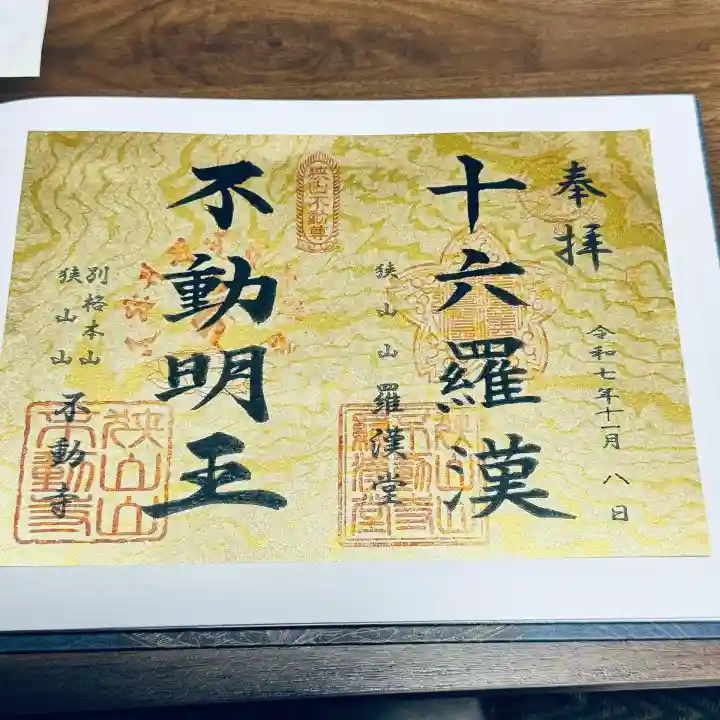 奉拝
令和七年十一月八日
十六羅漢
狭山山 羅漢堂
狭山不動尊
不動明王
別格本山
狭山山 不動寺
狭山山
不動寺